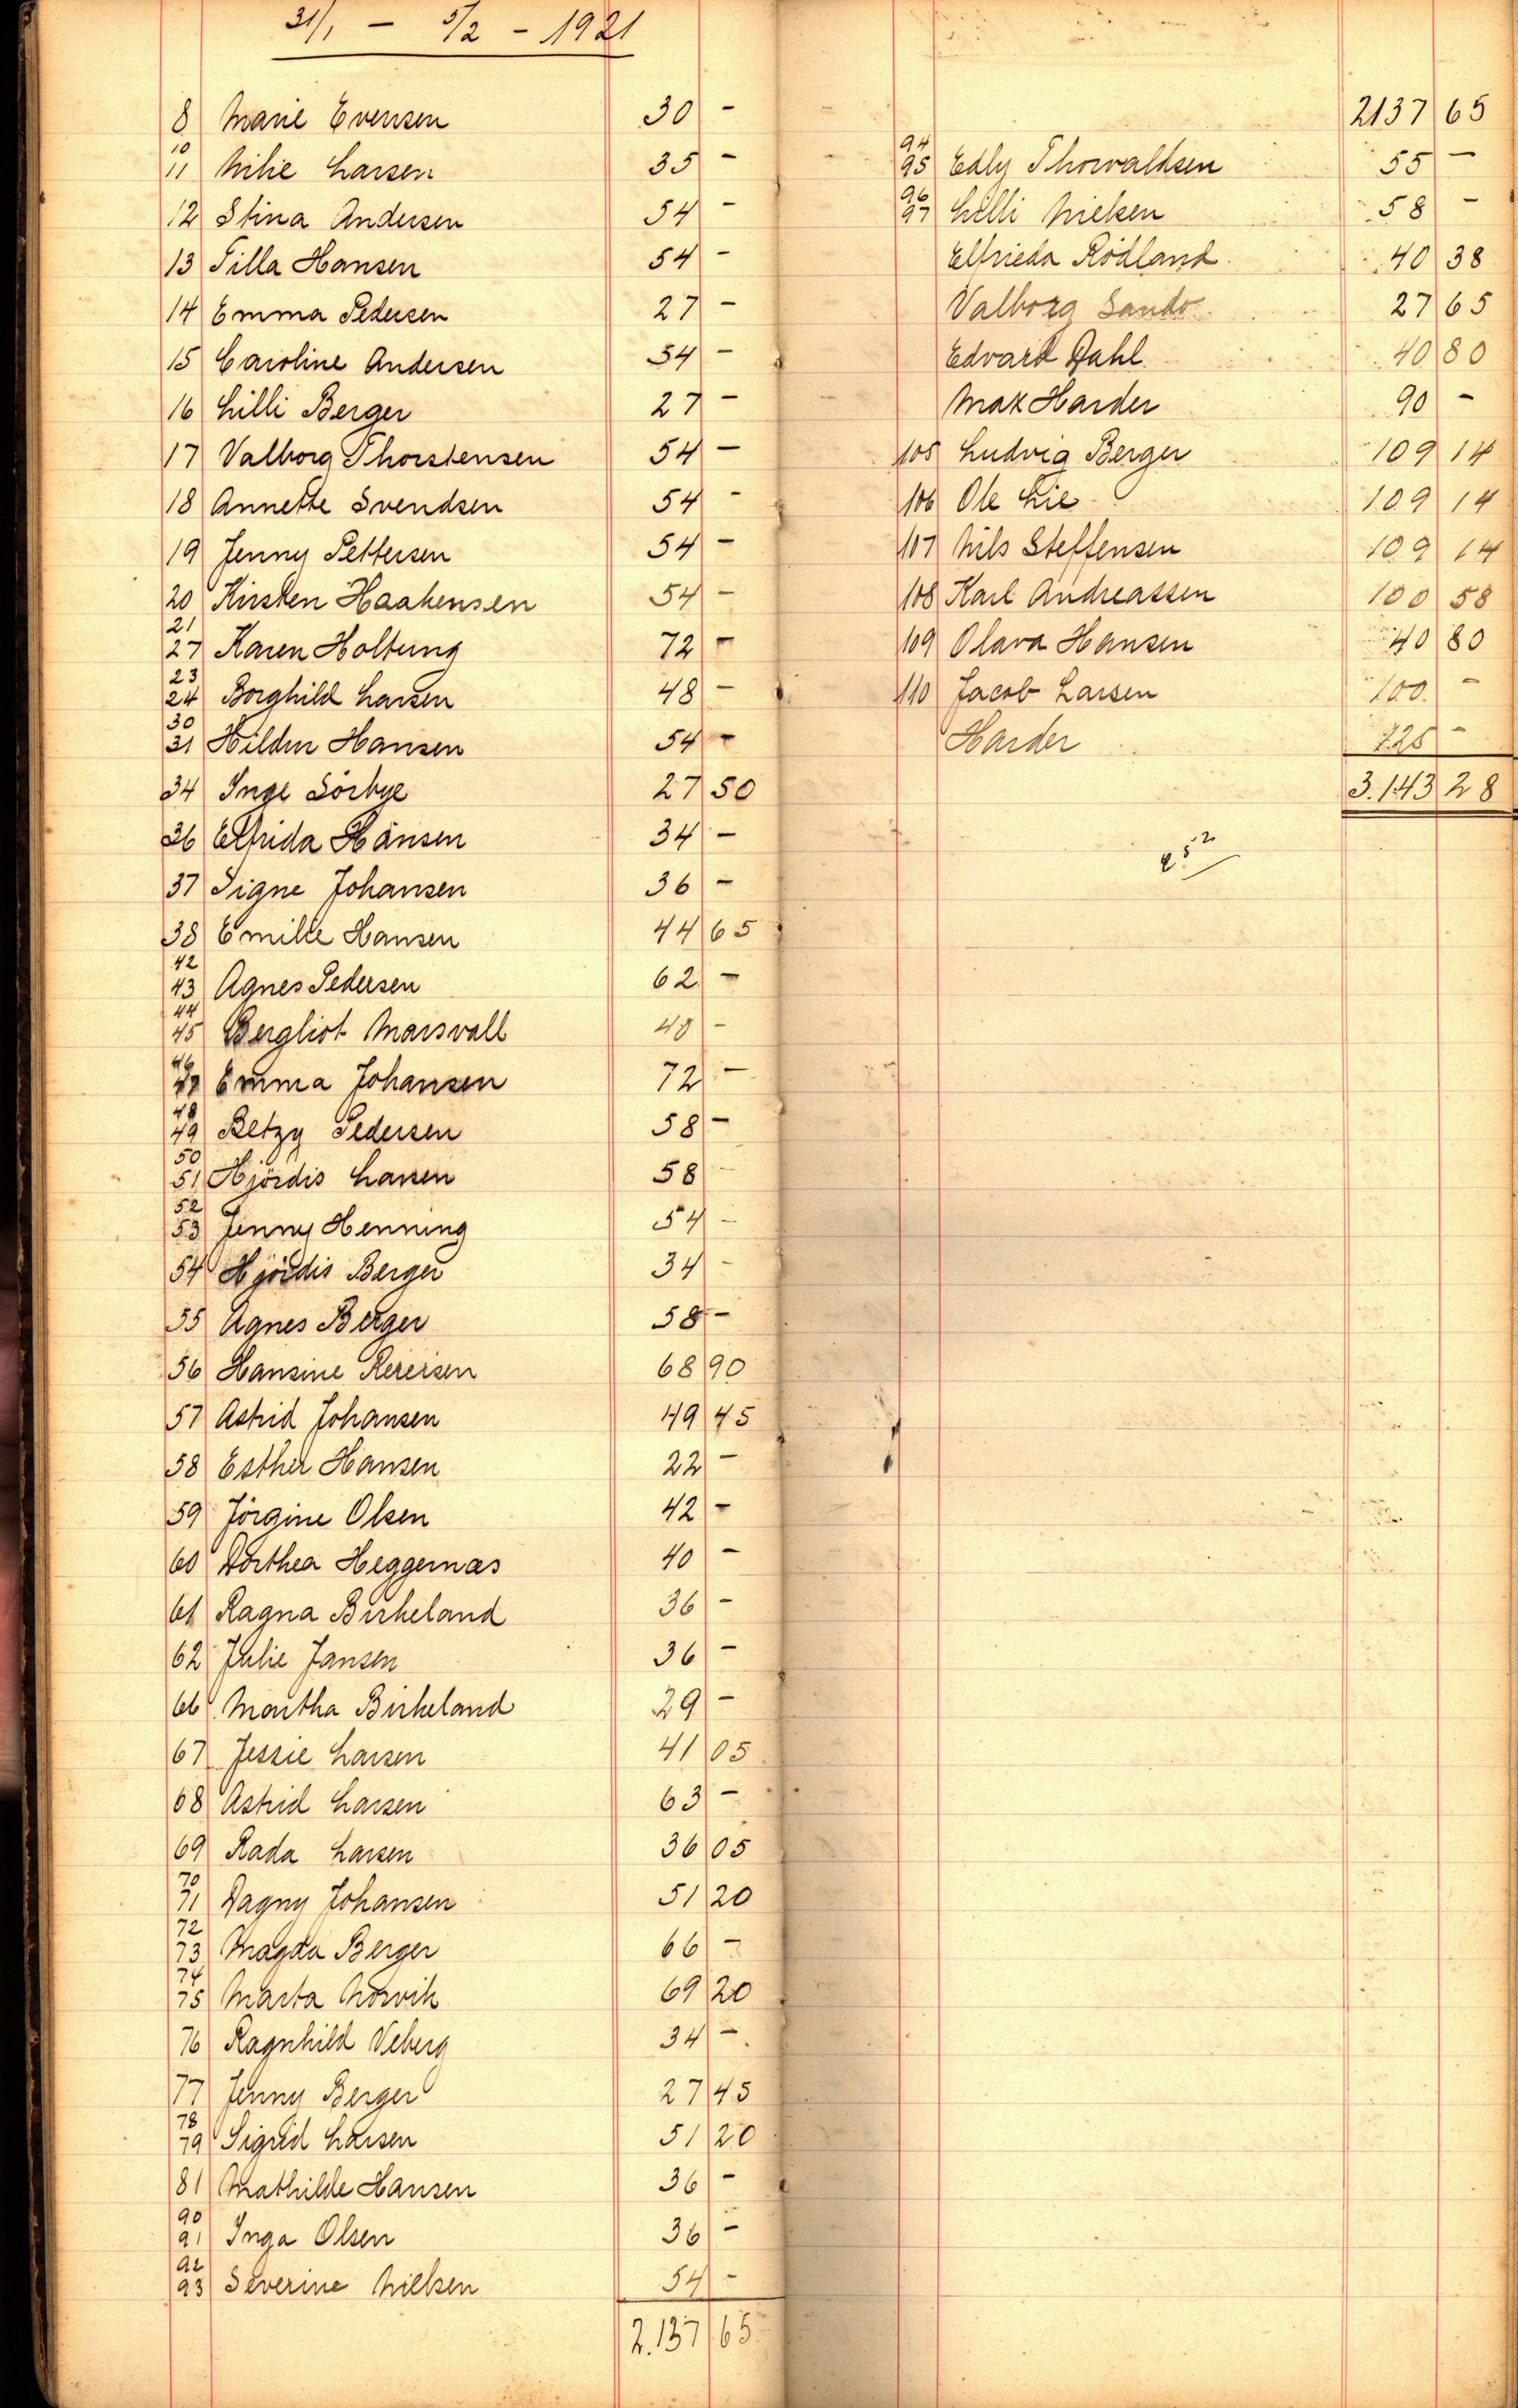 31/1 - 5/2 - 1921
8 Marie Evensen 30 -
10
11 Milie Larsen 35 -
12 Stina Andersen 54 -
13 Tilla Hansen 54 -
14 Emma Pedersen 27 -
15 Caroline Andersen 54 -
16 Lilli Berger 27 -
17 Valborg Thorstensen 54 -
18 Annette Svendsen 54 -
19 Jenny Pettersen 54 -
20 Kirsten Haakensen 54 -
21
27 Karen Holtung 72 -
23
24 Borghild Larsen 48 -
30
31 Hildur Hansen 54 -
34 Inge Sörbye 27 50
36 Elfrida Hansen 34 -
37 Signe Johansen 36 -
38 Emilie Hansen 44 65
42
43 Agnes Pedersen 62 -
44
45 Bergliot Marsvall 48 -
46
47 Emma Johansen 72 -
48
49 Betzy Pedersen 58 -
50
51 Hjördis Larsen 58 -
52
53 Jenny Henning 54 -
54 Hjördis Berger 34 -
55 Agnes Berger 58 -
56 Hansine Reiersen 68 90
57 Astrid Johansen 49 45
58 Esther Hansen 22 -
59 Jörgine Olsen 42 -
60 Dorthea Heggernæs 40 -
61 Ragna Birkeland 36 -
62 Julie Jansen 36 -
66 Martha Birkeland 29 -
67 Jessie Larsen 41 05
68 Astrid Larsen 63 -
69 Rada Larsen 36 05
70
71 Dagny Johansen 51 20
72
73 Magda Berger 66 -
74
75 Marta Norvik 69 20
76 Ragnhild Veberg 34 -
77 Jenny Berger 27 45
78
79 Sigrid Larsen 51 20
81 Mathilde Hansen 36 -
90
91 Inga Olsen 36 -
92
93 Severine Nielsen 54 -
2.137 65
2137 65
94
95 Edly Thorvaldsen 55 -
96
97 Lilli Nielsen 58 -
Elfrieda Rödland 40 38
Valborg Sando 27 65
Edvard Dahl 40 80
Max Harder 90 -
105 Ludvig Berger 109 14
106 Ole Lie 109 14
107 Nils Steffensen 109 14
108 Karl Andreassen 100 58
109 Olava Hansen 40 80
110 Jacob Larsen 100 -
Harder 125 -
3.143 28